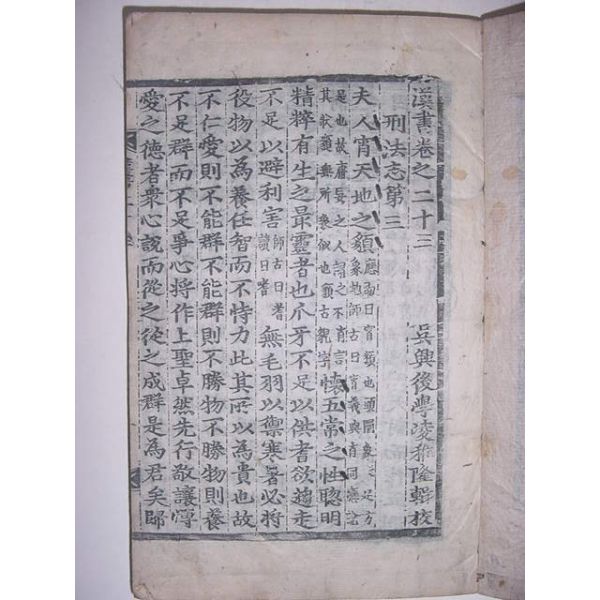 漢書卷之二十三 吳興後學凌稚隆輯校
刑法志第三
夫人宵天地之䫉 應劭曰宵類也頭圜象天足方
象地師古曰宵義與肖同應說
是也故庸妄之人謂之不肖言
其狀䫉無所象似也䫉古貌字 懷五常之性聰明
精粹有生之最靈者也爪牙不足以供耆欲趨走
不足以避利害 師古曰耆
讀曰嗜 無毛羽以禦寒暑必將
役物以為養任智而不恃力此其所以為貴也故
不仁愛則不能群不能群則不勝物不勝物則養
不足群而不足爭心將作上聖卓然先行敬讓博
愛之德者衆心說而從之從之成群是為君矣歸